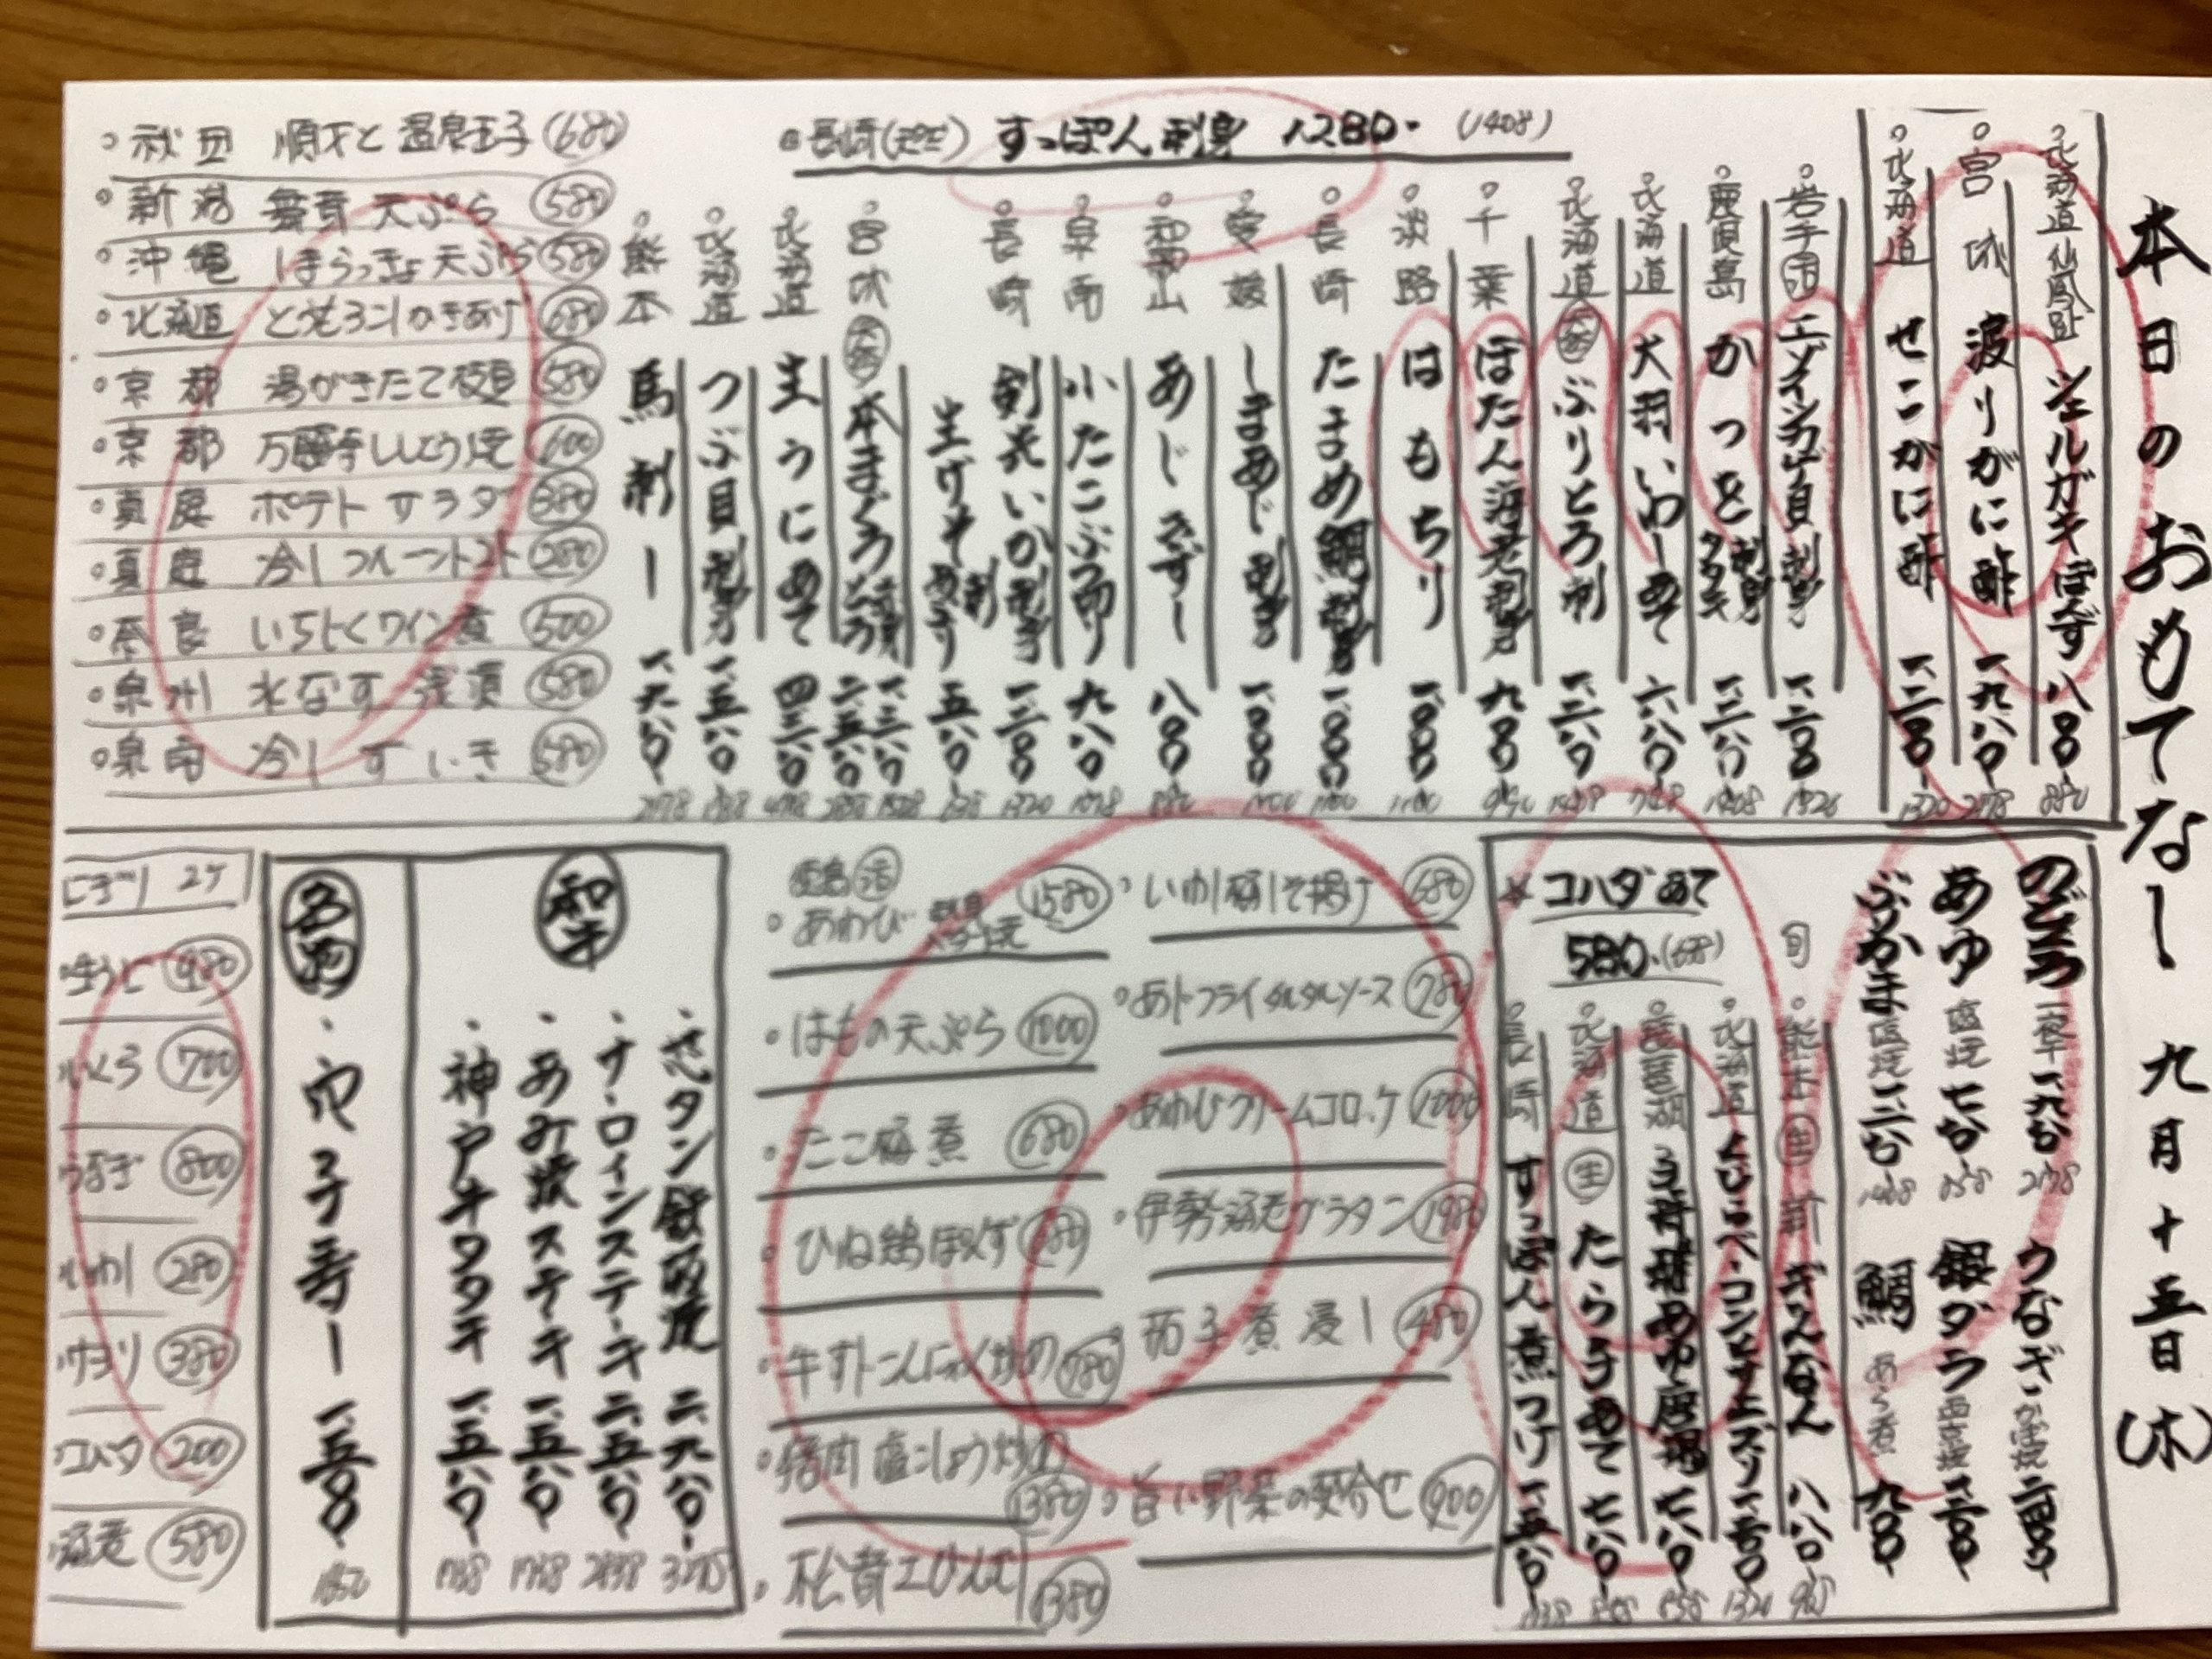 本日のおもてなし 九月十五日(木)
北海道仙鳳趾 シェルガキぽんず 八〇〇 880
宮城 渡りがに酢 一、九八〇 2178
北海道 せこがに酢 一、二〇〇 1320
岩手 活 エゾイシカゲ貝 刺身 一、二〇〇 1320
鹿児島 かつを 刺身 タタキ 一、二八〇 1408
北海道 大羽いわしあて 六八〇 748
北海道 天然 ぶりとろ刺 一、二八〇 1408
千葉 ぼたん海老刺身 九〇〇 990
淡路 はもちり 一、〇〇〇 1100
長崎 たまめ鯛刺身 一、〇〇〇 1100
愛媛 しまあじ刺身 一、〇〇〇 1100
和歌山 あじきずし 八〇〇 880
泉南 小たこぶつ切り 九八〇 1078
長崎 剣先いか刺身 一、二〇〇 1320
生げそ 刺 あぶり 五八〇 638
宮城 天然 本まぐろ
北海道 生うにあて 四、三八〇
北海道 つぶ貝刺身 一、五八〇
熊本 馬刺し 一、九八〇 2178
長崎 すっぽん刺身 1,280- (1408)
秋田 順才と温泉玉子 680
新潟 舞茸天ぷら 580
沖縄 しまらっきょ天ぷら 580
北海道 とうもろこしかきあげ 680
京都 湯がきたて枝豆 580
京都 万願寺ししとう焼 600
真庭 ポテトサラダ 380
真庭 冷しフルーツトマト 280
奈良 いちじくワイン煮 500
泉州 水なす浅漬 580
泉南 冷しすいき 580
のどぐろ 一夜干 一、九八〇 2178
あゆ 塩焼 七八〇 858
ぶりかま 塩焼 一、二八〇 1408
うなぎ かば焼
銀ダラ 西京焼 一、二〇〇
鯛 あら煮 九〇〇
旬 熊本 生 新 ぎんなん 八八〇 968
北海道 くじらベーコンとサエズリ 一、二〇〇 1320
琵琶湖 子持稚あゆ唐揚 七八〇 858
北海道 生 たらこあて 七八〇 858
長崎 すっぽん煮つけ 一、五八〇 1738
コハダあて
580-(638)
いわし梅しそ揚げ 680
あじフライタルタルソース 780
あわびクリームコロッケ 1000
伊勢海老グラタン 1980
茄子煮浸し 480
旨い野菜の焚合せ 900
徳島 活
あわび 1580
はもの天ぷら 1000
たこ梅煮 680
ひね鶏ぽんず
牛すじこんにゃく炒め 780
猪肉 塩こしょう炒め 1380
松茸土びんむし 1380
和牛
芯タン鉄板焼 二、九八〇 3278
サーロインステーキ 二、五八〇 2838
あみ焼ステーキ 一、五八〇 1738
神戸牛タタキ 一、五八〇 1738
名物
穴子寿し 一、五〇〇 1650
にぎり 2ケ
生うに 980
いくら 700
うなぎ 800
いわし 280
サヨリ 380
コハダ 200
海老 580